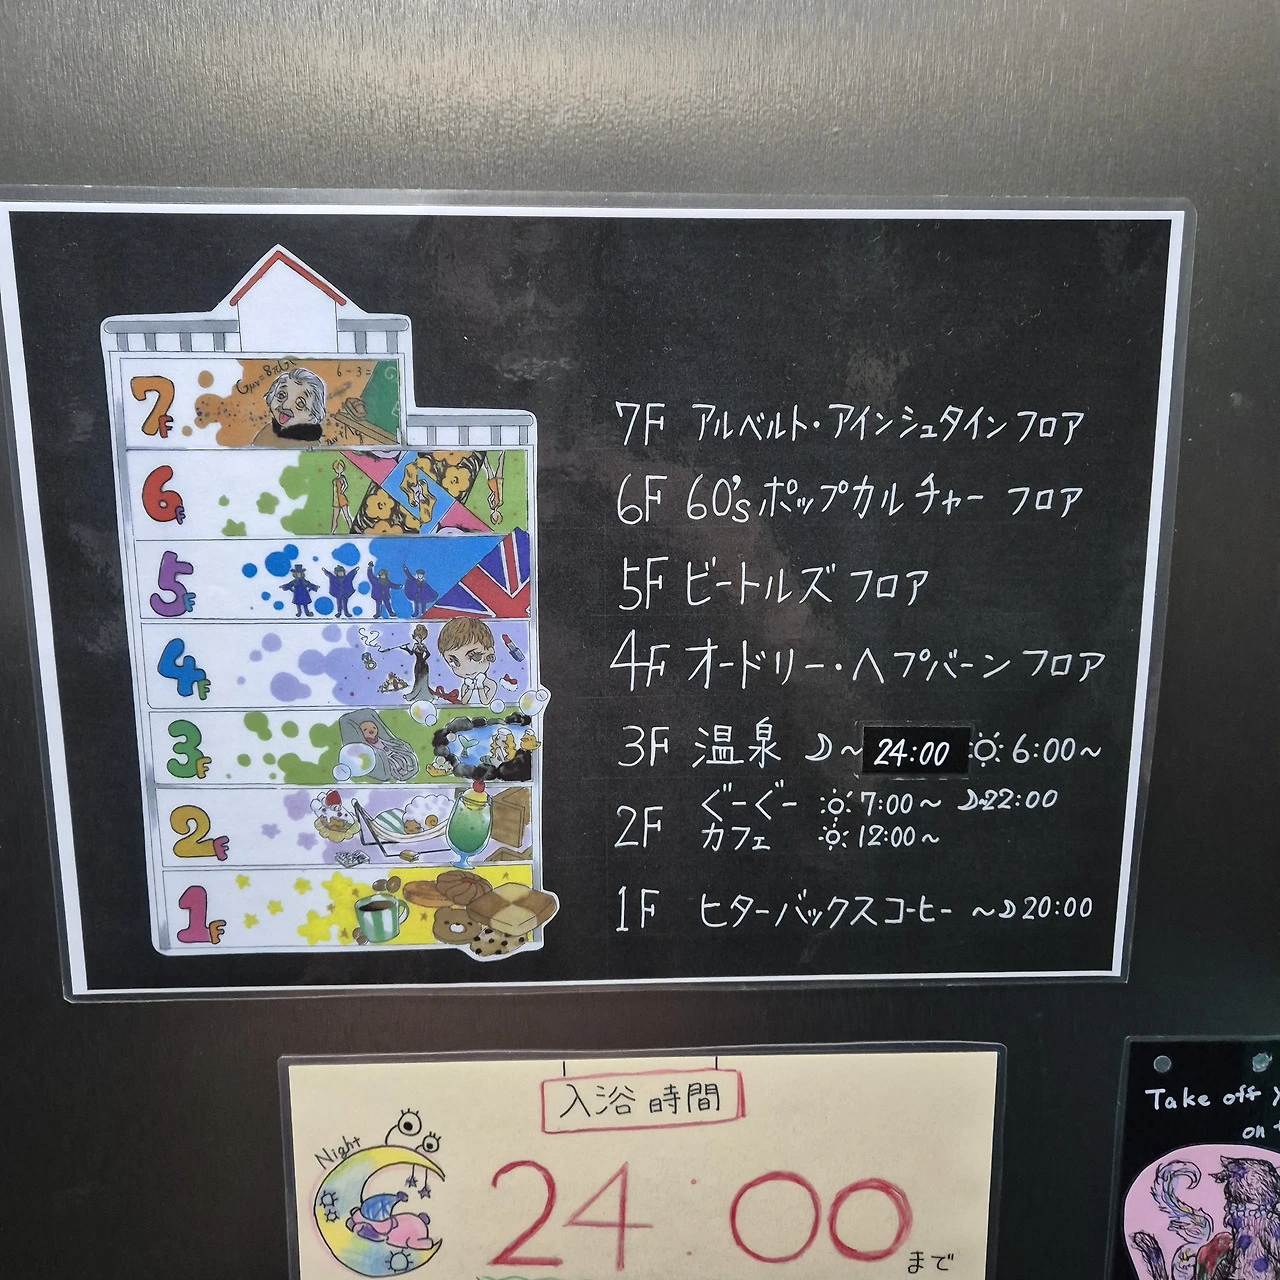 7F
6F
5F
4F
3F
2F
1F
6-3=
7F アルベルト・アインシュタインフロア
6F 60'sポップカルチャー フロア
5F ビートルズ フロア
4F オードリー・ヘプバーン フロア
3F 温泉 ~24:00 6:00~
2F ぐーぐー カフェ 7:00~ ~22:00
12:00~
1F ヒターバックスコーヒー ~20:00
入浴時間
Night
24:00まで
Take off
on